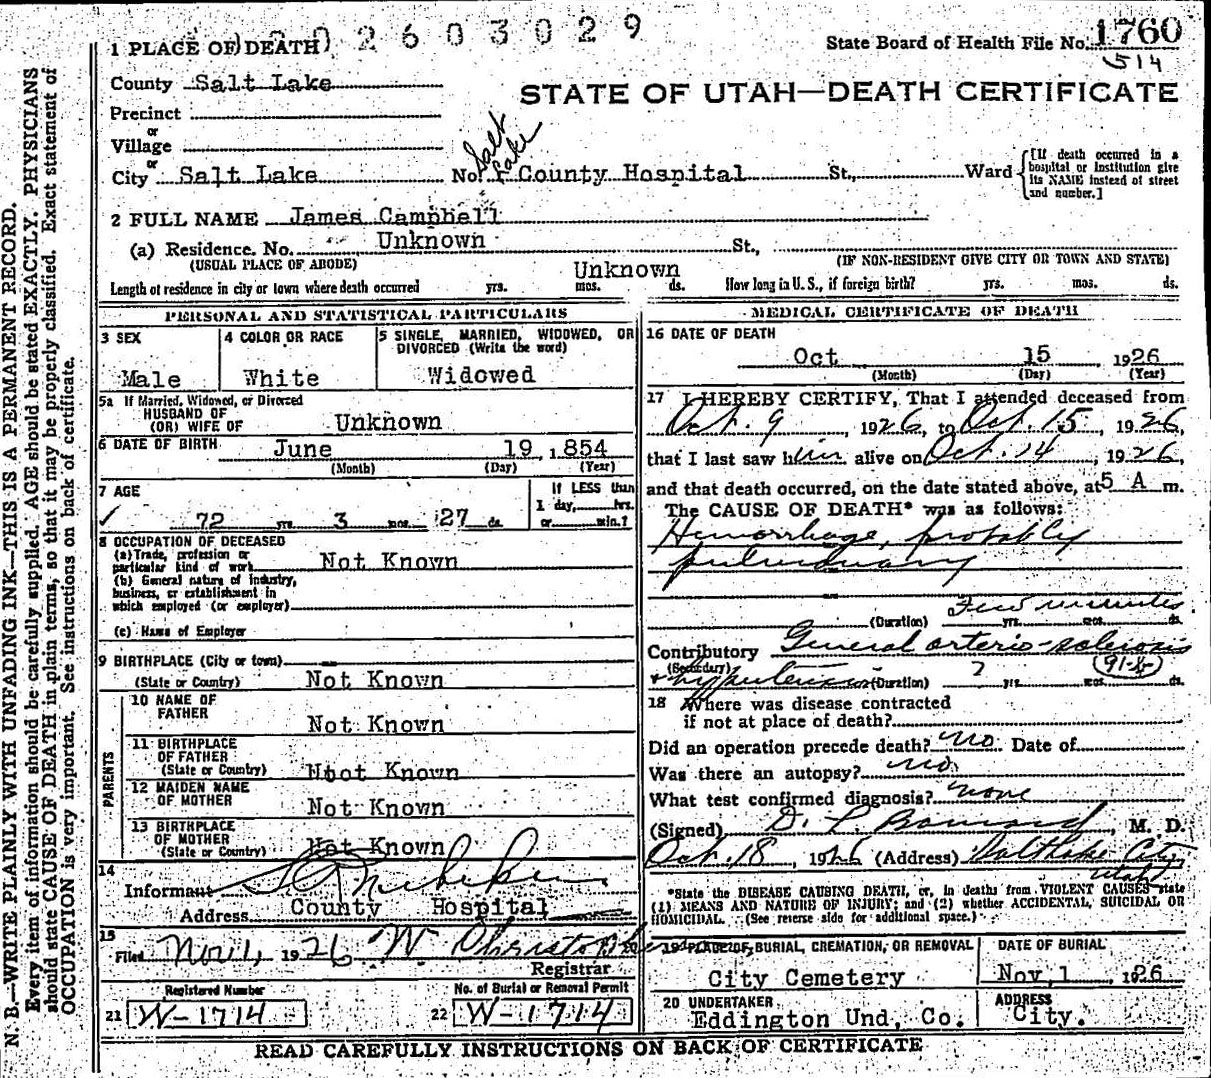 1 PLACE OF DEATH
2603029
State Board of Health File No. 1760
514
County Salt Lake
STATE OF UTAH—DEATH CERTIFICATE
Precinct
or
Village
or
City Salt Lake No. Salt Lake County Hospital St., Ward [If death occurred in a hospital or institution give its NAME instead of street and number.]
2 FULL NAME James Campbell
(a) Residence. No. Unknown St.,
(USUAL PLACE OF ABODE) (IF NON-RESIDENT GIVE CITY OR TOWN AND STATE)
Unknown
Length of residence in city or town where death occurred yrs. mos. ds. How long in U. S., if foreign birth? yrs. mos. ds.
PERSONAL AND STATISTICAL PARTICULARS
3 SEX 4 COLOR OR RACE 5 SINGLE, MARRIED, WIDOWED, OR DIVORCED (Write the word)
Male White Widowed
5a If Married, Widowed, or Divorced
HUSBAND OF
(OR) WIFE OF Unknown
6 DATE OF BIRTH June 19, 1854
(Month) (Day) (Year)
7 AGE If LESS than
1 day, hrs.
✓ 72 yrs. 3 mos. 27 ds. or min.?
8 OCCUPATION OF DECEASED
(a) Trade, profession or
particular kind of work Not Known
(b) General nature of industry,
business, or establishment in
which employed (or employer)
(c) Name of Employer
9 BIRTHPLACE (City or town)
(State or Country) Not Known
PARENTS
10 NAME OF
FATHER Not Known
11 BIRTHPLACE
OF FATHER
(State or Country) Nbot Known
12 MAIDEN NAME
OF MOTHER Not Known
13 BIRTHPLACE
OF MOTHER
(State or Country) Not Known
14
Informant
Address County Hospital
15
Filed Nov 1, 1926 W
Registrar
Registered Number No. of Burial or Removal Permit
21 W-1714 22 W-1714
MEDICAL CERTIFICATE OF DEATH
16 DATE OF DEATH
Oct 15 1926
(Month) (Day) (Year)
17 I HEREBY CERTIFY, That I attended deceased from
Oct. 9, 1926, to Oct. 15, 1926,
that I last saw him alive on Oct. 14, 1926,
and that death occurred, on the date stated above, at 5 A m.
The CAUSE OF DEATH* was as follows:
Hemorrhage, probably
pulmonary
Few minutes
(Duration) yrs. mos. ds.
Contributory General arterio-sclerosis
(Secondary) 91-b
+ hypertension (Duration) ? yrs. mos. ds.
18 Where was disease contracted
if not at place of death?
Did an operation precede death? no Date of
Was there an autopsy? no
What test confirmed diagnosis? none
(Signed) D. L. M. D.
Oct. 18, 1926 (Address) Salt Lake City,
Utah
*State the DISEASE CAUSING DEATH, or, in deaths from VIOLENT CAUSES state
(1) MEANS AND NATURE OF INJURY; and (2) whether ACCIDENTAL, SUICIDAL OR
HOMICIDAL. (See reverse side for additional space.)
19 PLACE OF BURIAL, CREMATION, OR REMOVAL DATE OF BURIAL
City Cemetery Nov, 1 1926
20 UNDERTAKER ADDRESS
Eddington Und, Co. City.
READ CAREFULLY INSTRUCTIONS ON BACK OF CERTIFICATE
N. B.—WRITE PLAINLY WITH UNFADING INK—THIS IS A PERMANENT RECORD.
Every item of information should be carefully supplied. AGE should be stated EXACTLY. PHYSICIANS
should state CAUSE OF DEATH in plain terms, so that it may be properly classified. Exact statement of
OCCUPATION is very important. See instructions on back of certificate.